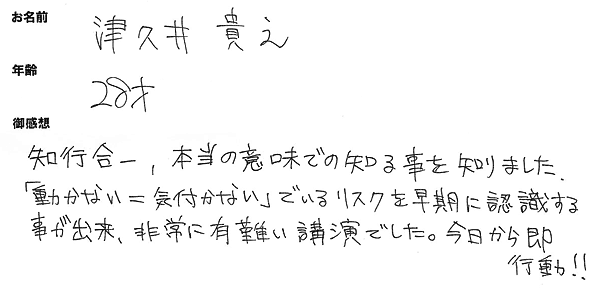 お名前
津久井 貴之
年齢
28才
御感想
知行合一，本当の意味での知る事を知りました．
「動かない＝気付かない」でいるリスクを早期に認識する
事が出来、非常に有難い講演でした。今日から即
行動!!